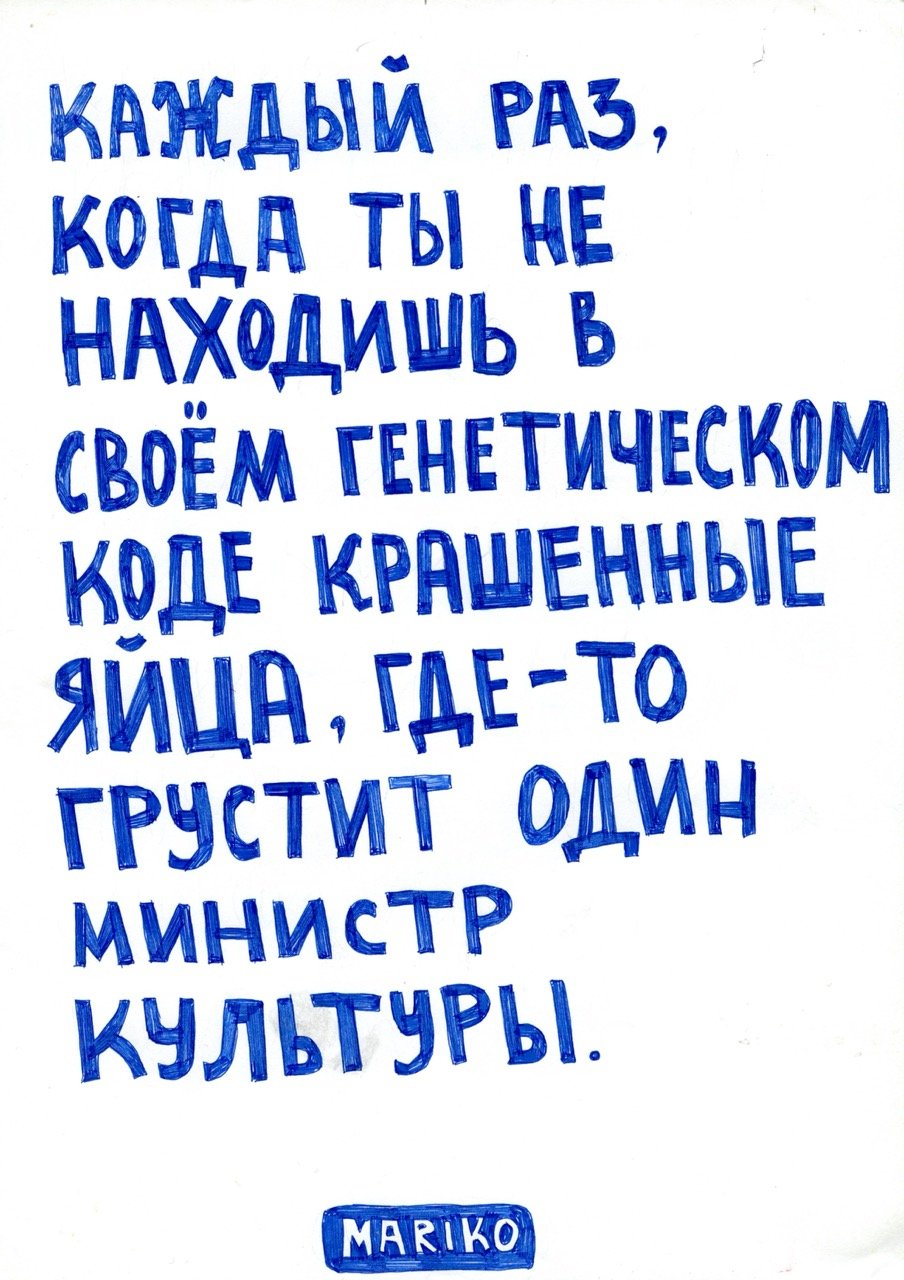 КАЖДЫЙ РАЗ,
КОГДА ТЫ НЕ
НАХОДИШЬ В
СВОЁМ ГЕНЕТИЧЕСКОМ
КОДЕ КРАШЕННЫЕ
ЯЙЦА, ГДЕ-ТО
ГРУСТИТ ОДИН
МИНИСТР
КУЛЬТУРЫ.
MARIKO